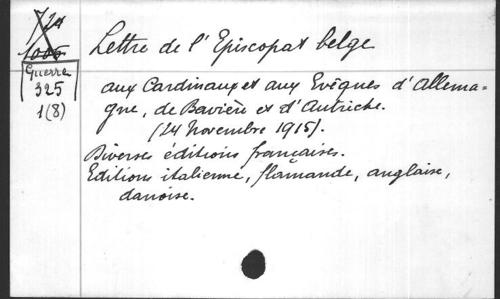 Lettre de l'Episcopat belge
Guerre
325
1(8)
aux Cardinaux et aux Evêques d'Allema=
gne, de Bavière et d'Autriche.
(24 Novembre 1915).
Diverses éditions françaises.
Editions italienne, flamande, anglaise,
danoise.